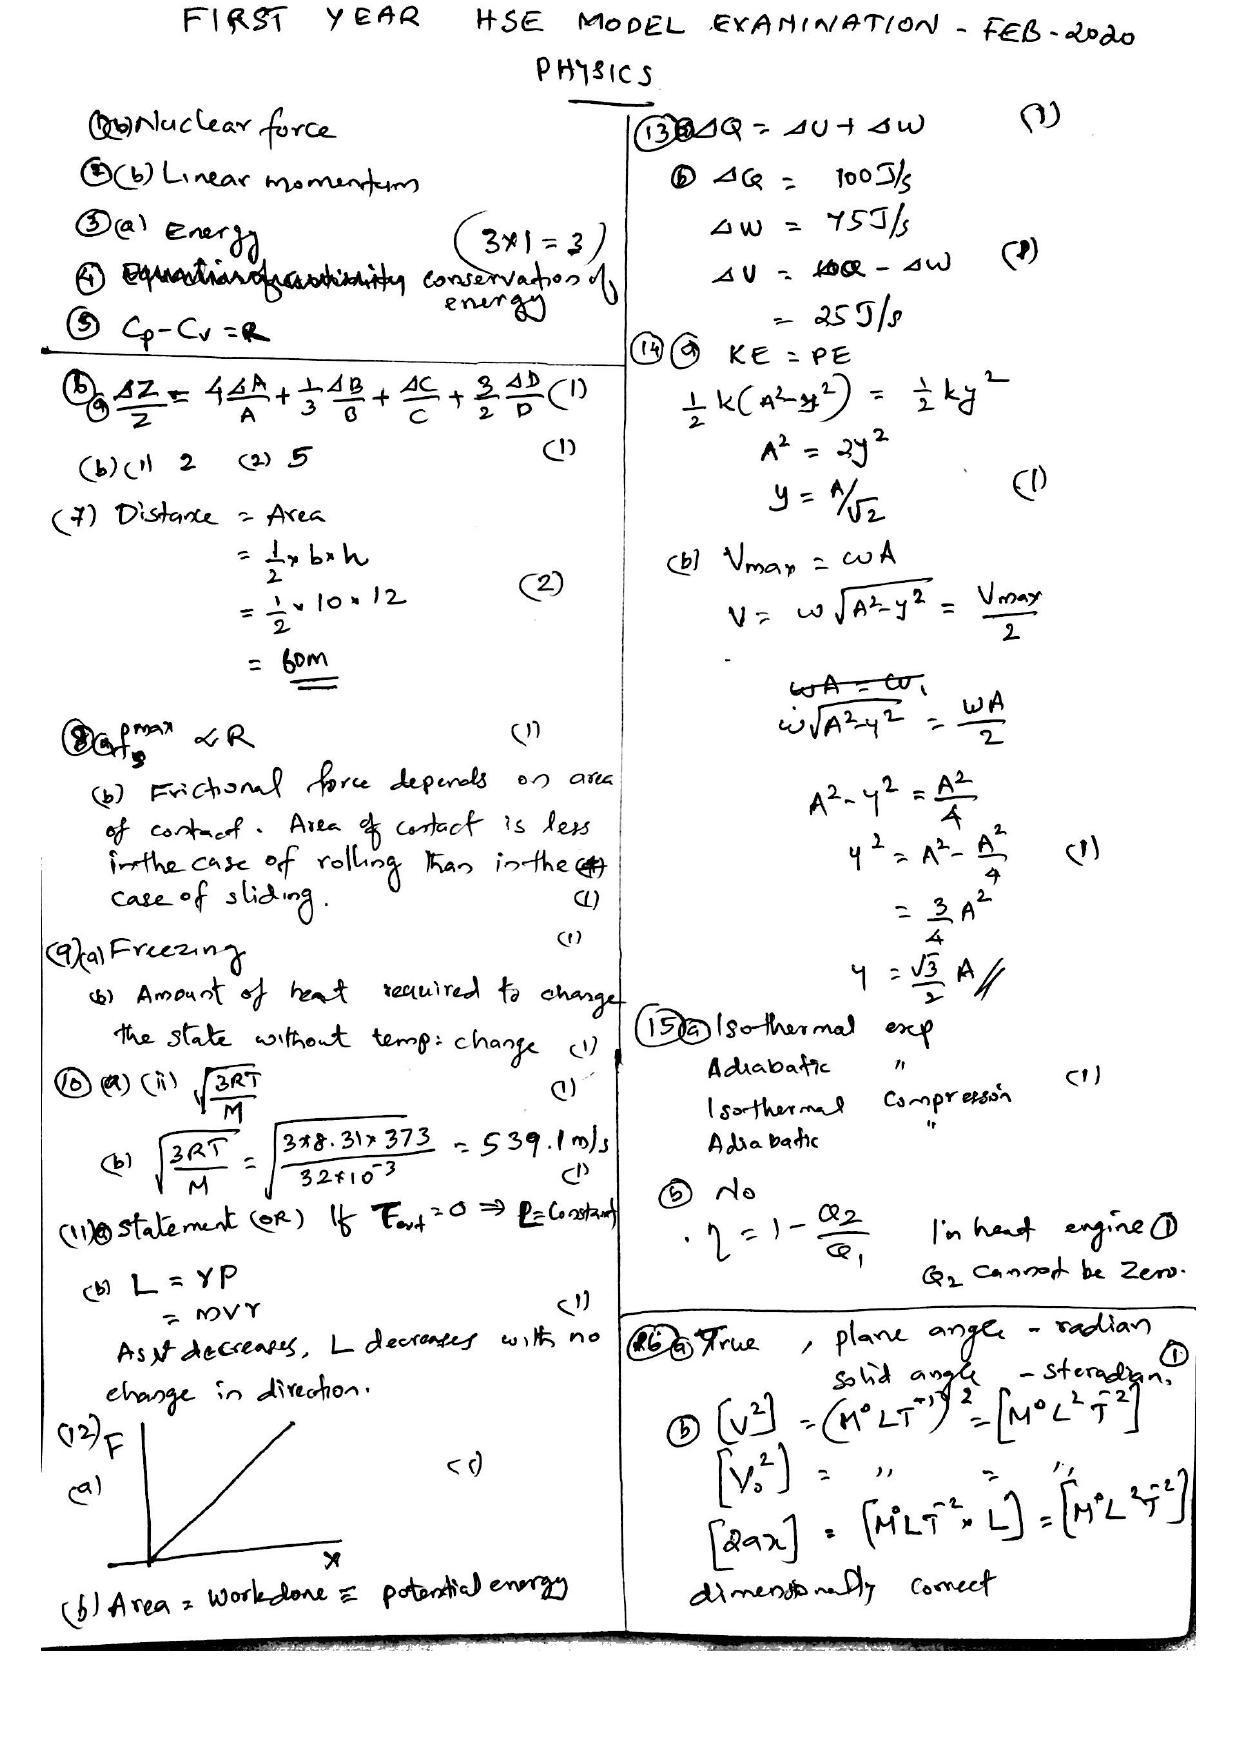 FIRST YEAR HSE MODEL EXAMINATION - FEB-2020
PHYSICS
①(b) Nuclear force
②(b) Linear momentum
③(a) Energy
(3×1=3)
④ conservation of
energy
⑤ Cp-Cv=R
⑥ a ΔZ/Z = 4ΔA/A + 1/3 ΔB/B + ΔC/C + 3/2 ΔD/D (1)
(b) (1) 2 (2) 5 (1)
(7) Distance = Area
= 1/2 × b × h
= 1/2 × 10 × 12 (2)
= 60m
⑧ a fs max ∝ R (1)
(b) Frictional force depends on area
of contact. Area of contact is less
in the case of rolling than in the
case of sliding. (1)
(9)(a) Freezing (1)
(b) Amount of heat required to change
the state without temp: change (1)
⑩ (a) (ii) √(3RT/M) (1)
(b) √(3RT/M) = √(3×8.31×373/32×10⁻³) = 539.1 m/s
(1)
(11) a statement (OR) If τext=0 ⇒ L=Constant
(b) L = rp
= mvr (1)
As decreases, L decreases with no
change in direction.
(12) F
(a) (1)
x
(b) Area = Workdone = potential energy
⑬ a ΔQ = ΔU + ΔW (1)
ⓑ ΔQ = 100J/s
ΔW = 75J/s
ΔU = ΔQ - ΔW (1)
= 25J/s
⑭ ⓐ KE = PE
1/2 k(A²-y²) = 1/2 ky²
A² = 2y²
y = A/√2 (1)
(b) Vmax = ωA
V = ω√(A²-y²) = Vmax/2
ωA = ω
ω√(A²-y²) = ωA/2
A²-y² = A²/4
y² = A² - A²/4 (1)
= 3/4 A²
y = √3/2 A //
⑮ ⓐ Isothermal exp
Adiabatic "
Isothermal Compression (1)
Adiabatic "
ⓑ No
η = 1 - Q2/Q1 In heat engine ①
Q2 cannot be zero.
16 ⓐ True , plane angle - radian
solid angle - steradian, ①
ⓑ [V²] = (M⁰LT⁻¹)² = [M⁰L²T⁻²]
[V₀²] = " = "
[2ax] = [M⁰LT⁻² × L] = [M⁰L²T⁻²]
dimensionally correct